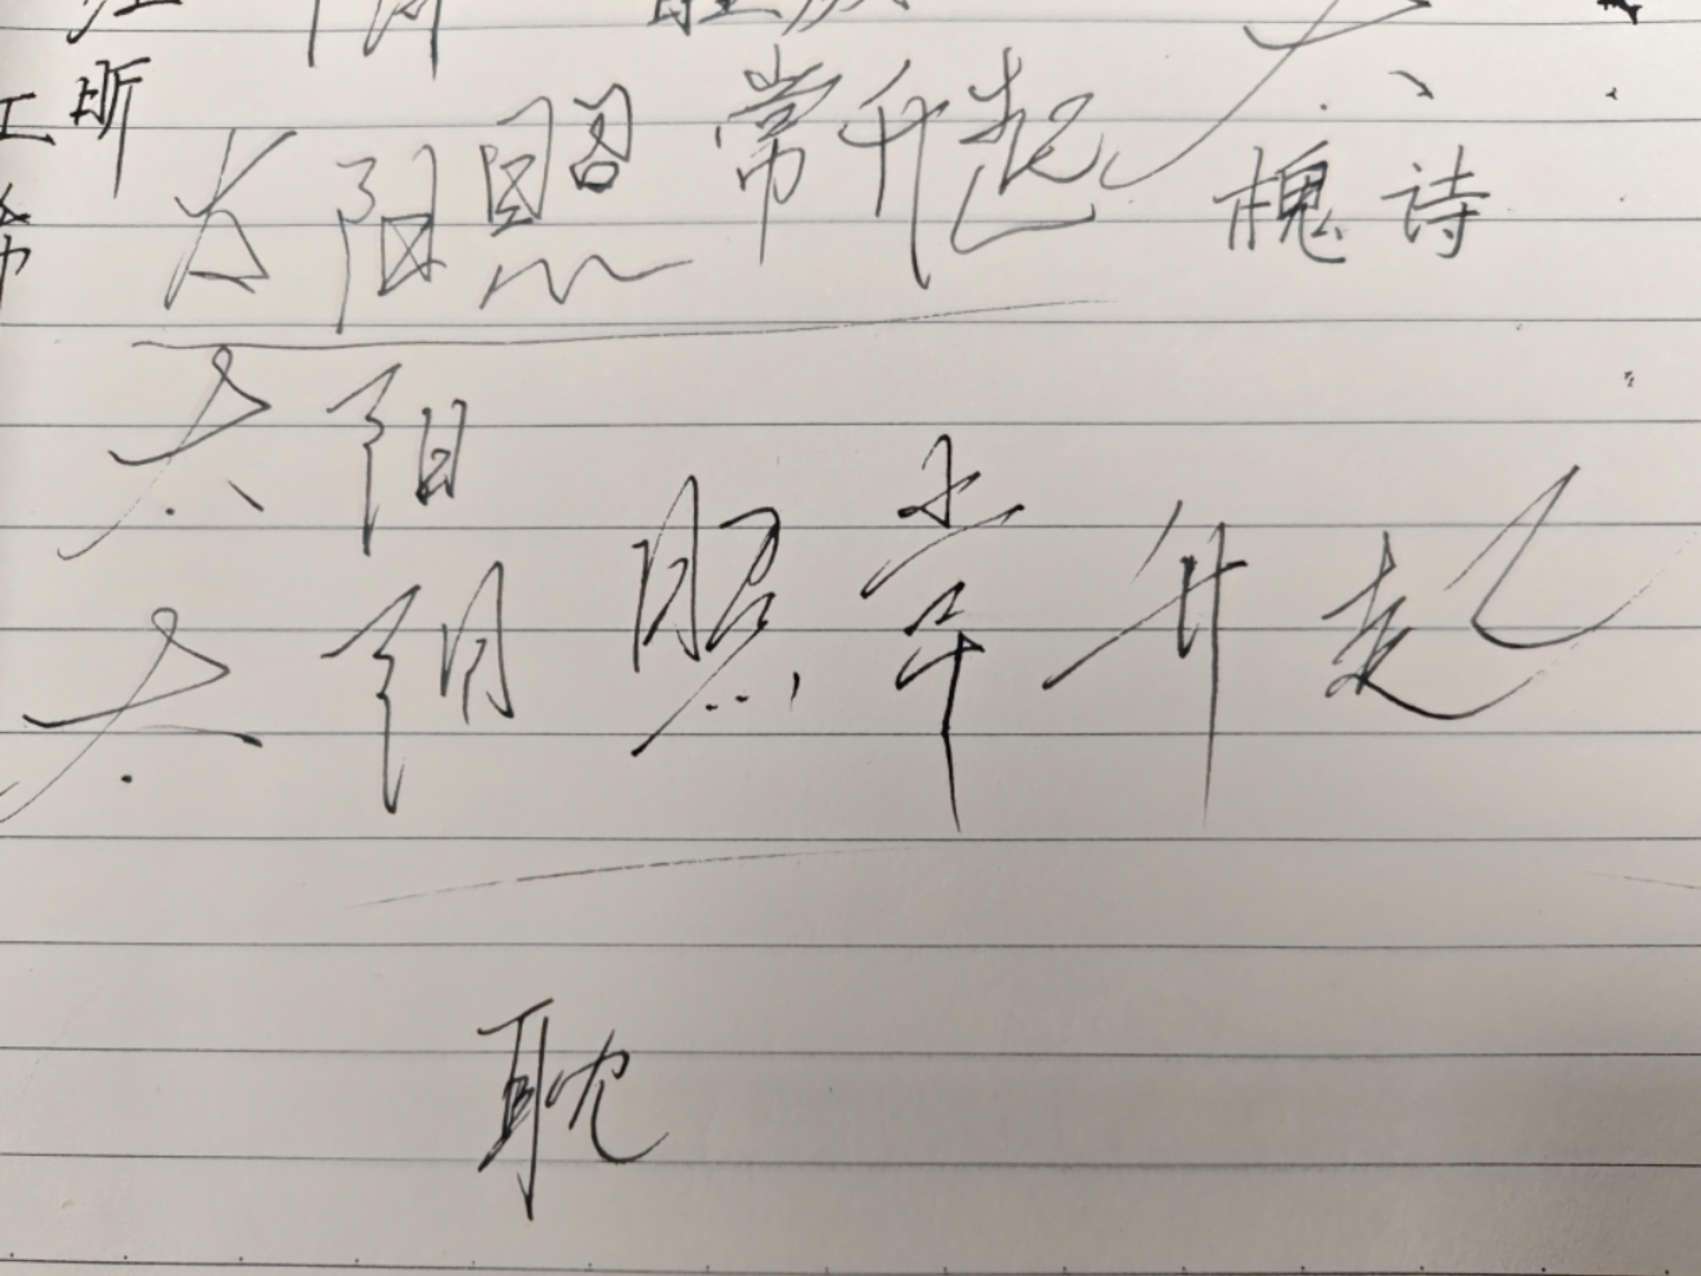 昕
太阳照常升起
槐诗
太阳
太阳照常升起
耽